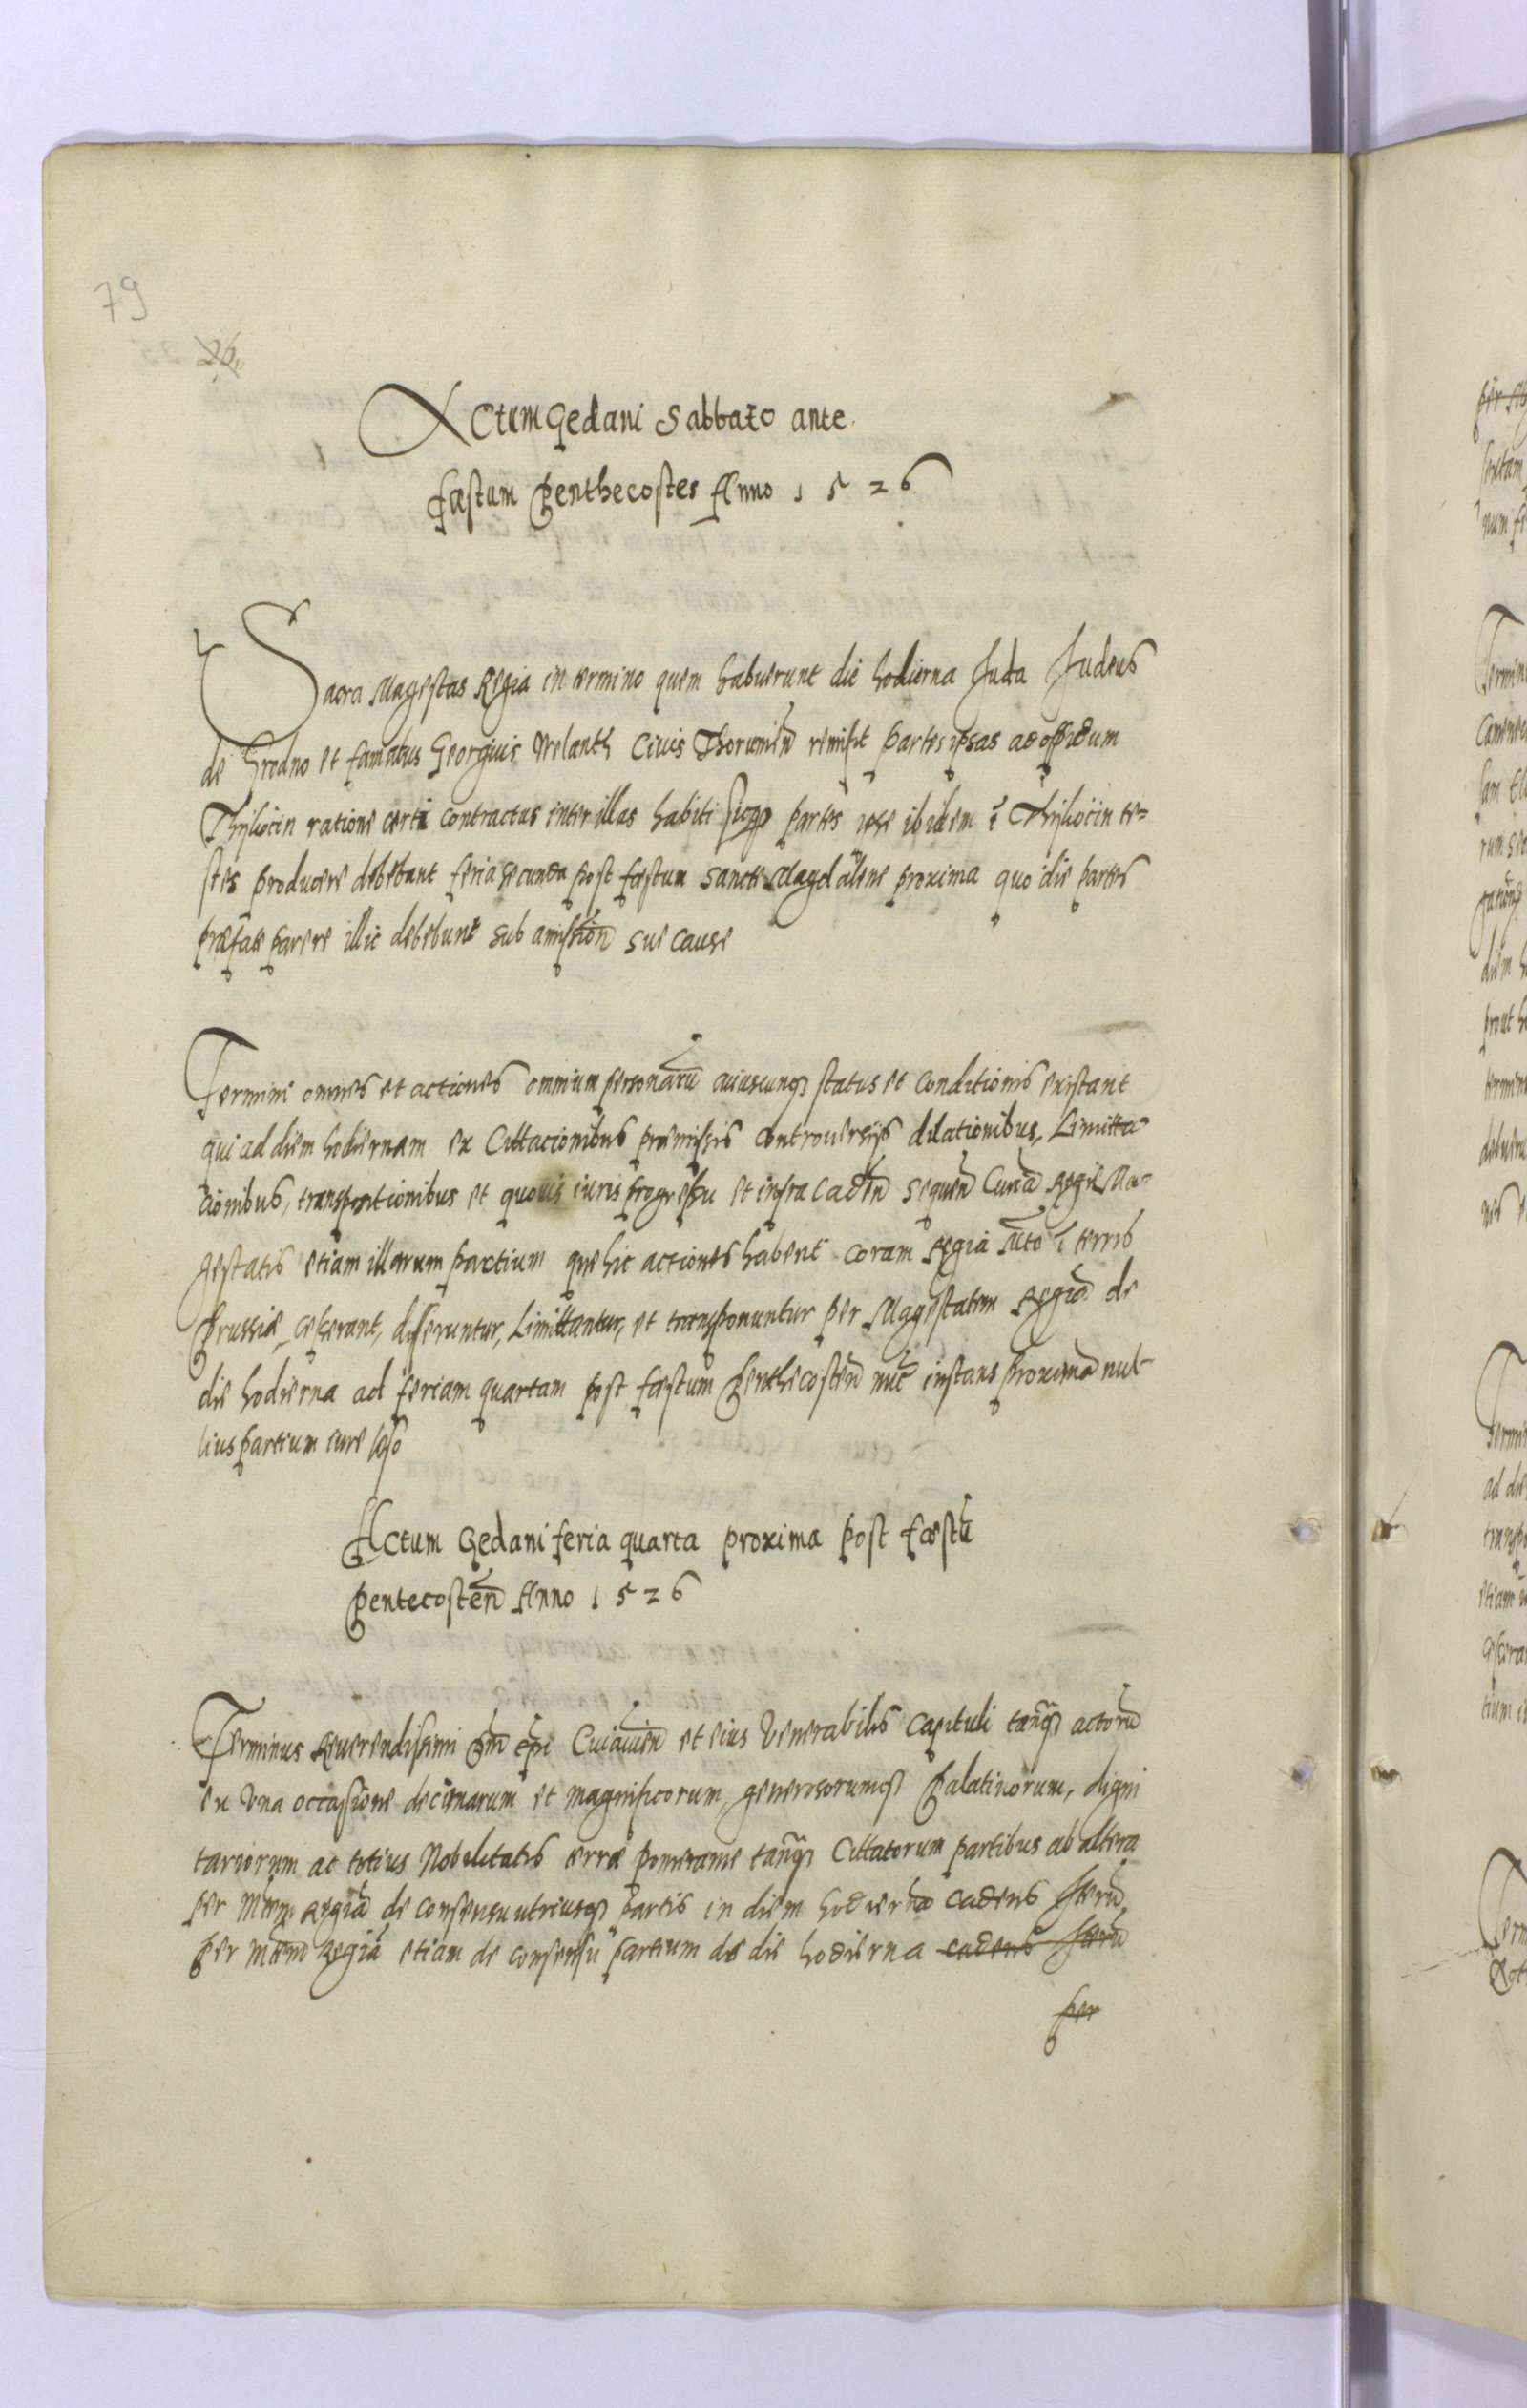 79
26
Actum Gedani Sabbato ante
fæstum Penthecostes Anno 1526
Sacra Magestas Regia in termino quem habuerunt die hodierna Juda Judeus
de Grodno et famatus Georgius Melanth Civis Thorunień remisit partes ipsas ad oppidum
Thykocin ratione certi contractus inter illas habiti sicq partes ipse ibidem ī Thykocin te=
stes producere debebant feria secunda post fæstum sancte Magdalene proxima quo die partes
præfate parere illic debebunt sub amission sue cause
Termini omnes et actiones omnium personarū cuiuscunq status et conditionis existant
qui ad diem hodiernam ex Cittacionibus præmissis controuersijs dilationibus, Limitta=
cionibus, transpositionibus et quouis iuris progressu et infra caden sequen Curia Regie Ma=
gestatis etiam illarum partium que hic actiones habent coram Regia Mte ī terris
Prussiæ, cesserant, differuntur, Limittantur, et transponuntur per Magestatem Regia de
die hodierna ad feriam quartam post fæstum Penthecosten nūc instans proxima nul-
lius partium iure leso
Actum Gedani feria quarta proxima post fæstū
Pentecosten Anno 1526
Terminus Reuerendissimi dni Epi Cuiauien et eius Venerabilis Capituli tanq actorū
ex Vna occasione decimarum et magnificorum, generosorumq Palatinorum, digni
tariorum ac totius Nobilitatis terræ pomeranie tanq Cittatorum partibus ab altera
per Mtem Regiā de consensu utriusq partis in diem hodierna cadens Iterū
per Mtem Regiā etiam de consensu partium de die hodierna cadens Iterū
per